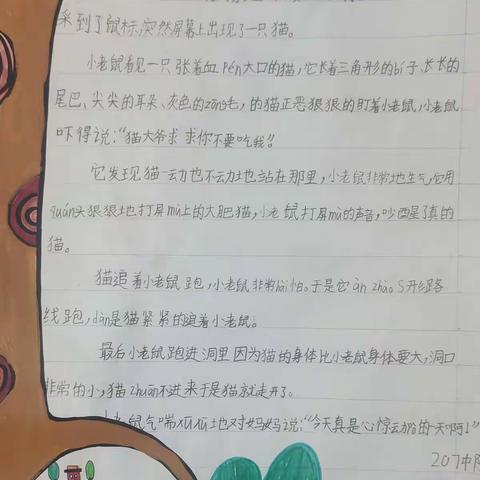 采到了鼠标,突然屏幕上出现了一只猫。
小老鼠看见一只张着血pén大口的猫,它长着三角形的bí子、长长的
尾巴、尖尖的耳朵、灰色的zōng毛,的猫正恶狠狠的盯着小老鼠,小老鼠
吓得说:“猫大爷求求你不要吃我!”
它发现猫一动也不动地站在那里,小老鼠非常地生气,它用
quán头狠狠地打屏mù上的大肥猫,小老鼠打屏mù的声音,吵醒了真的
猫。
猫追着小老鼠跑,小老鼠非常hài怕。于是它àn zhào S形路
线跑,dàn是猫紧紧的追着小老鼠。
最后小老鼠跑进洞里因为猫的身体比小老鼠身体要大,洞口
非常的小,猫zhuān不进来于是猫就走开了。
老鼠气喘xūxū地对妈妈说:“今天真是心惊动的一天啊!”
207中队